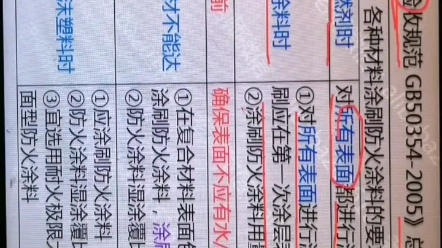 收规范 GB50354-2005》总
各种材料涂刷防火涂料的要
燃剂时
对所有表面都进行
涂料时
①对所有表面进行
刷应在第一次涂层
②涂刷防火涂料用量
前
确保表面不应有水
材不能达
①在复合材料表面
涂刷防火涂料，涂
②防火涂料湿涂覆比
沫塑料时
①应涂刷防火涂料
②防火涂料湿涂覆比
③宜选用耐火极限
面型防火涂料